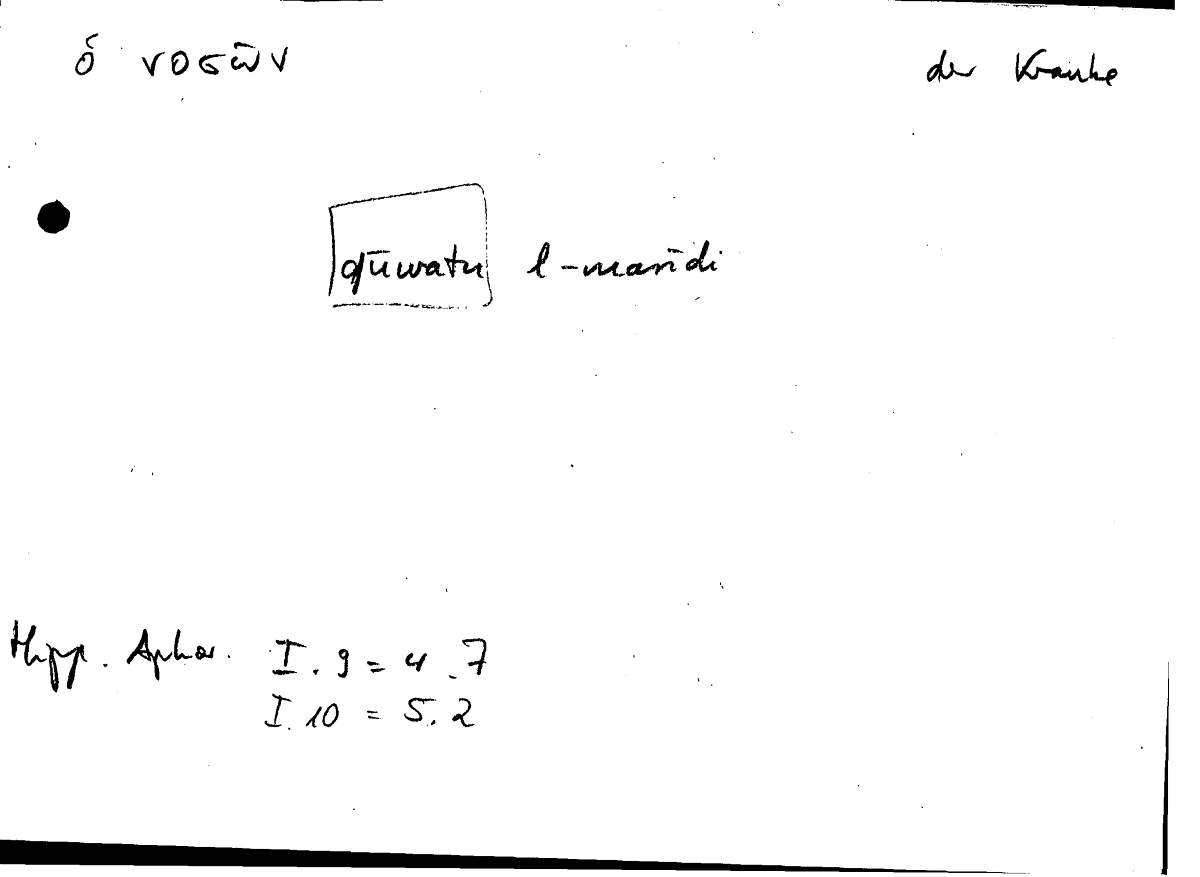 ὁ νοσῶν der Kranke
qūwatu l-marīdi
Hipp. Aphor. I. 9 = 4.7
I. 10 = 5.2